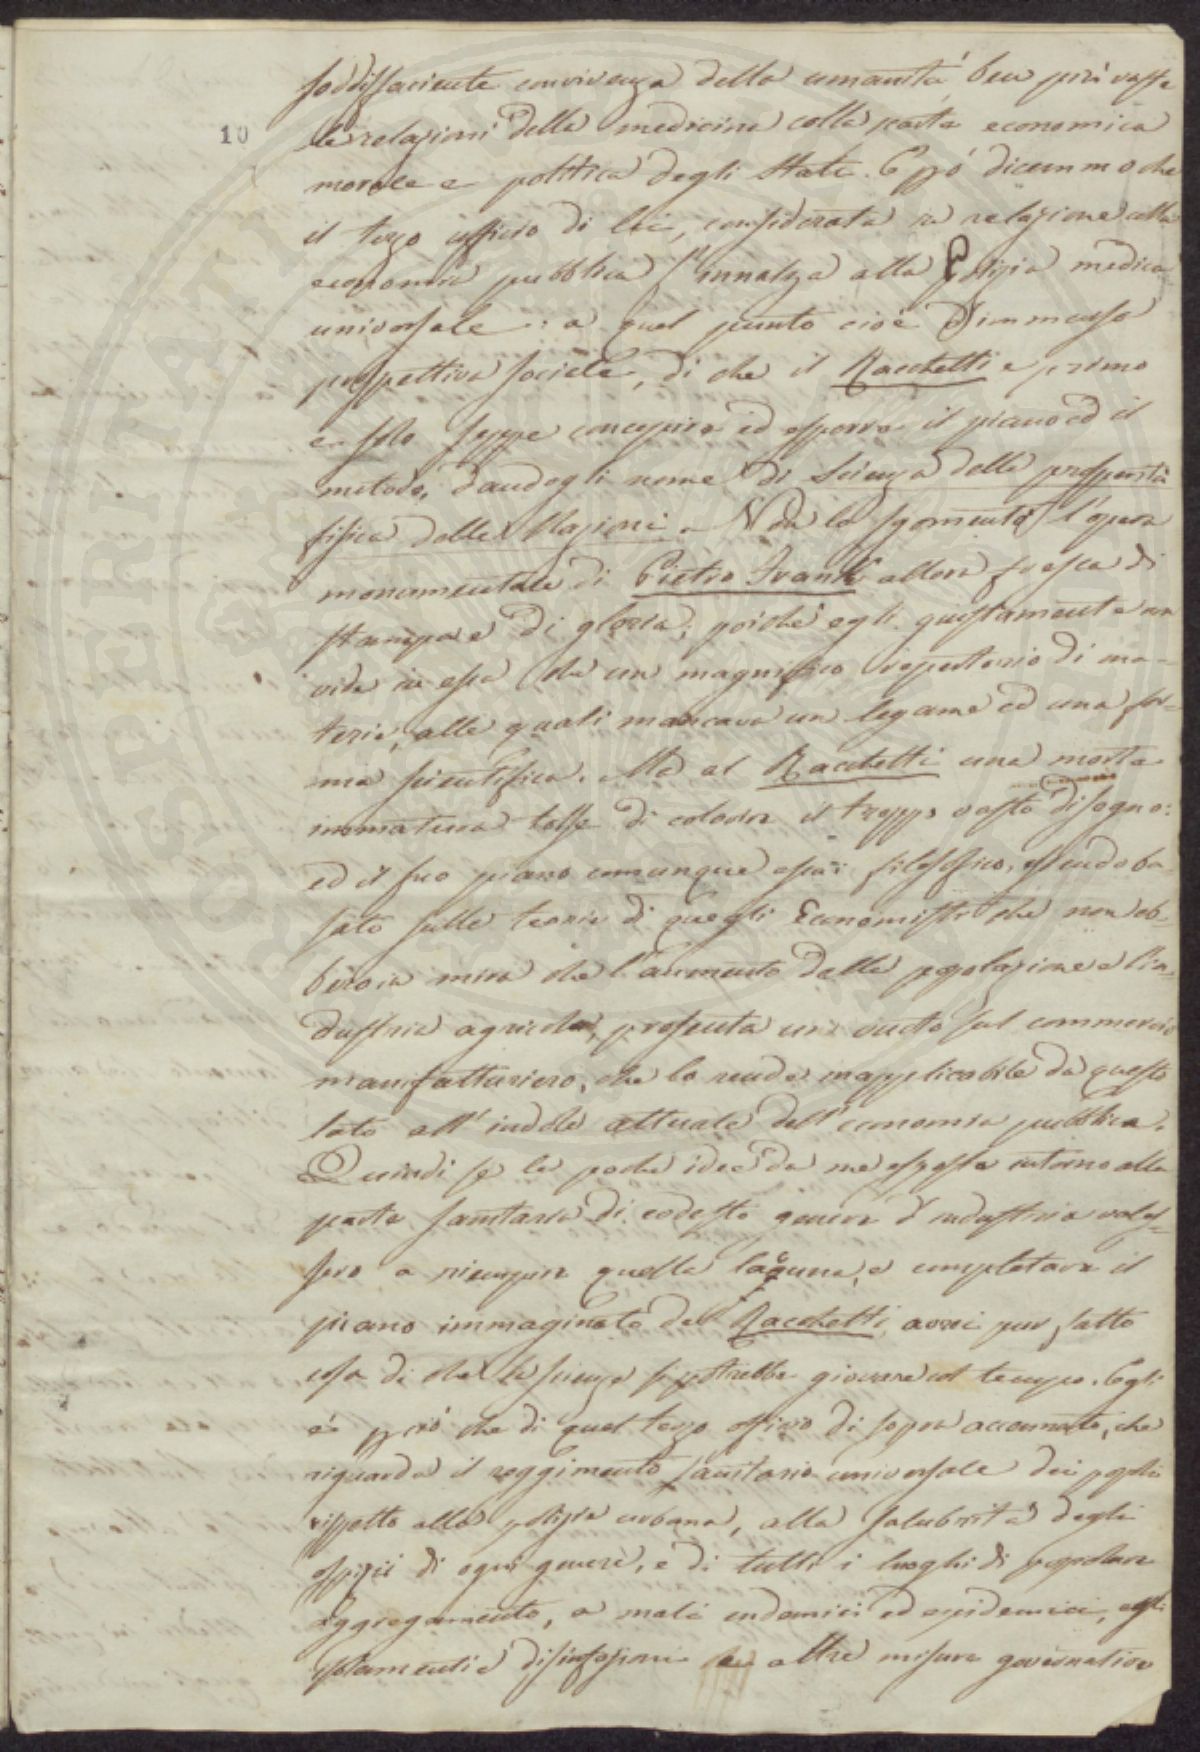 soddisfaciente convivenza della umanità, ben più vaste
10
le relazioni della medicina colla parte economica
morale e politica degli Stati. E però dicemmo che
il terzo ufficio di lei, considerata in relazione colla
economia pubblica s'innalza alla Polizia medica
universale: a quel punto cioè d'immensa
prospettiva sociale, di che il Racchetti e primo
e solo seppe concepire ed esporre il piano ed il
metodo, dandogli nome di Scienza della prosperità
fisica delle Nazioni. Nè lo sgomentò l'opera
monumentale di Pietro Frank allora fresca di
stampa e di gloria; poichè egli giustamente non
vide in essa che un magnifico repertorio di ma-
terie, alle quali mancava un legame ed una for-
ma scientifica. Ma al Racchetti una morte
immatura tolse di colorir il troppo vasto disegno:
ed il suo piano comunque assai filosofico, essendo ba
sato sulle teorie di quegli Economisti che non eb-
bero in mira che l'aumento della popolazione e l'in-
dustria agricola, presenta un vuoto sul commercio
manifatturiero, che lo rende inapplicabile da questo
lato all'indole attuale dell'economia pubblica.
Quindi se le poche idee da me esposte intorno alla
parte sanitaria di codesto genere d'industria vales-
sero a riempire quella lacuna, e completare il
piano immaginato dal Racchetti, avrei pur fatto
cosa di che la scienza si potrebbe giovare col tempo. Egli
è perciò che di quel terzo officio di sopra accennato, che
riguarda il reggimento sanitario universale dei popoli
rispetto alla polizia urbana, alla salubrità degli
ospizii di ogni genere, e di tutti i luoghi di popolare
aggregamento, a mali endemici ed epidemici, agli
isolamenti e disinfezioni ed altre misure governative